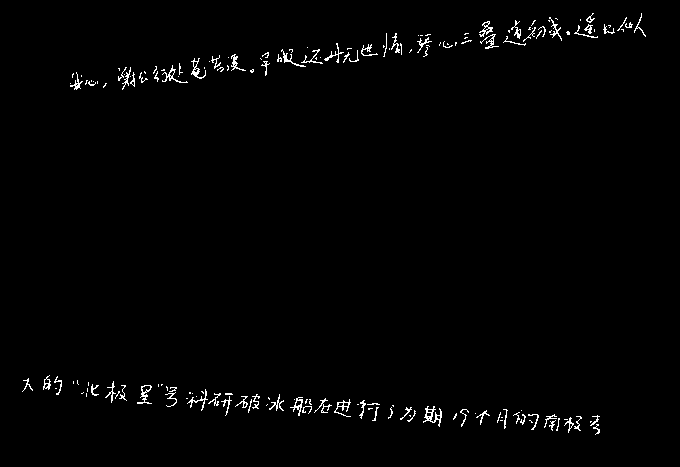 我心，谢公行处苍苔没。早服还丹无世情，琴心三叠道初成。遥见仙人
大的“北极星”号科研破冰船在进行了为期19个月的南极考